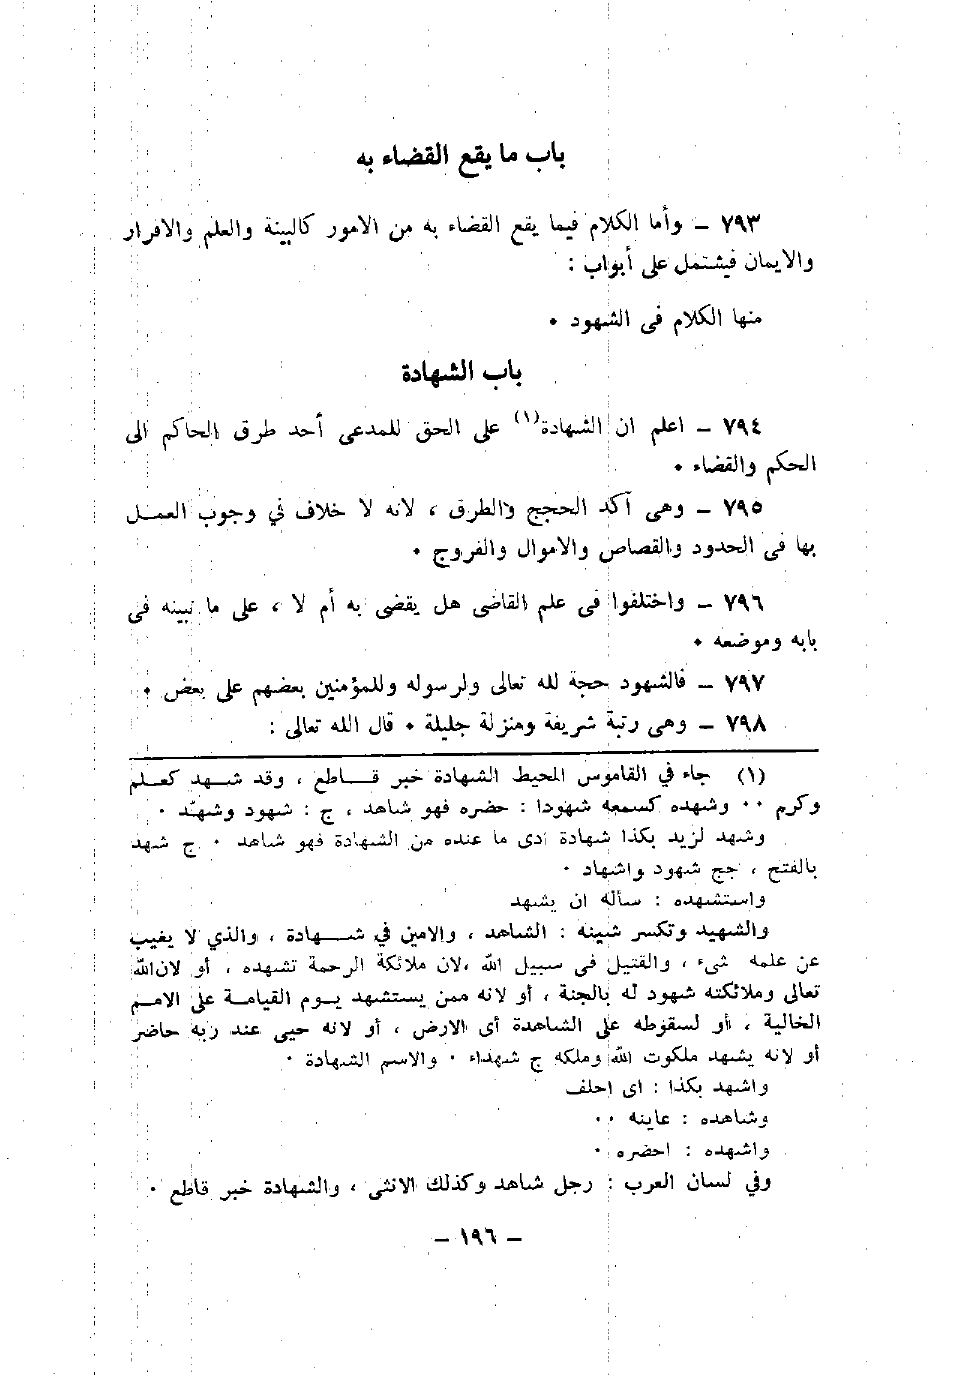 باب ما يقع القضاء به
٧٩٣ – وأما الكلام فيما يقع القضاء به من الامور كالبينة والعلم والاقرار
والايمان فيشتمل على أبواب :
منها الكلام فى الشهود •
باب الشهادة
٧٩٤ – اعلم ان الشهادة(١) على الحق للمدعى أحد طرق الحاكم الى
الحكم والقضاء •
٧٩٥ – وهى آكد الحجج والطرق ، لانه لا خلاف في وجوب العمــل
بها فى الحدود والقصاص والاموال والفروج •
٧٩٦ – واختلفوا فى علم القاضى هل يقضى به أم لا ، على ما نبينه فى
بابه وموضعه •
٧٩٧ – فالشهود حجة لله تعالى ولرسوله وللمؤمنين بعضهم على بعض •
٧٩٨ – وهى رتبة شريفة ومنزلة جليلة • قال الله تعالى :
(١) جاء في القاموس المحيط الشهادة خبر قـــاطع ، وقد شـــهد كعـلم
وكرم •• وشهده كسمعه شهودا : حضره فهو شاهد ، ج : شهود وشهّد •
وشهد لزيد بكذا شهادة ادى ما عنده من الشهادة فهو شاهد • ج شهد
بالفتح ، جج شهود واشهاد •
واستشهده : سأله ان يشهد
والشهيد وتكسر شينه : الشاهد ، والامين في شـــهادة ، والذي لا يغيب
عن علمه شىء ، والقتيل فى سبيل الله ،لان ملائكة الرحمة تشهده ، أو لان الله
تعالى وملائكته شهود له بالجنة ، أو لانه ممن يستشهد يــوم القيامــة على الامــم
الخالية ، أو لسقوطه على الشاهدة أى الارض ، أو لانه حيى عند ربه حاضر
أو لانه يشهد ملكوت الله وملكه ج شهداء • والاسم الشهادة •
واشهد بكذا : اى احلف
وشاهده : عاينه ••
واشهده : احضره •
وفي لسان العرب : رجل شاهد وكذلك الانثى ، والشهادة خبر قاطع •
– ١٩٦ –